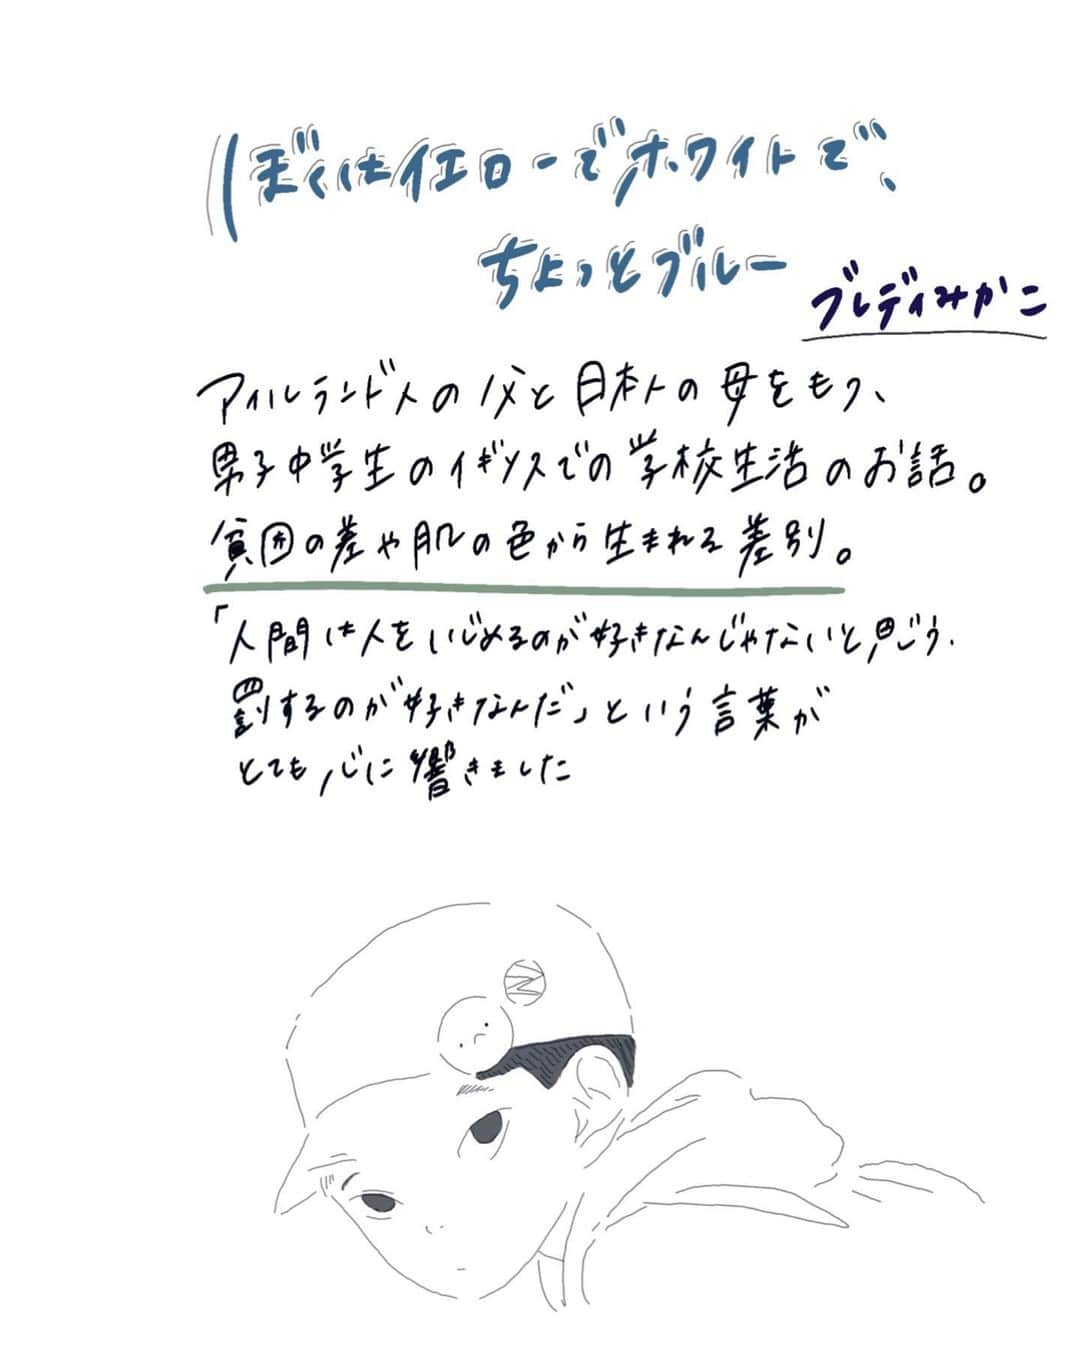 ぼくはイエローでホワイトで、
ちょっとブルー
ブレディみかこ
アイルランド人の父と日本人の母をもつ、
男子中学生のイギリスでの学校生活のお話。
貧困の差や肌の色から生まれる差別。
「人間は人をいじめるのが好きなんじゃないと思う.
罰するのが好きなんだ」という言葉が
とても心に響きました